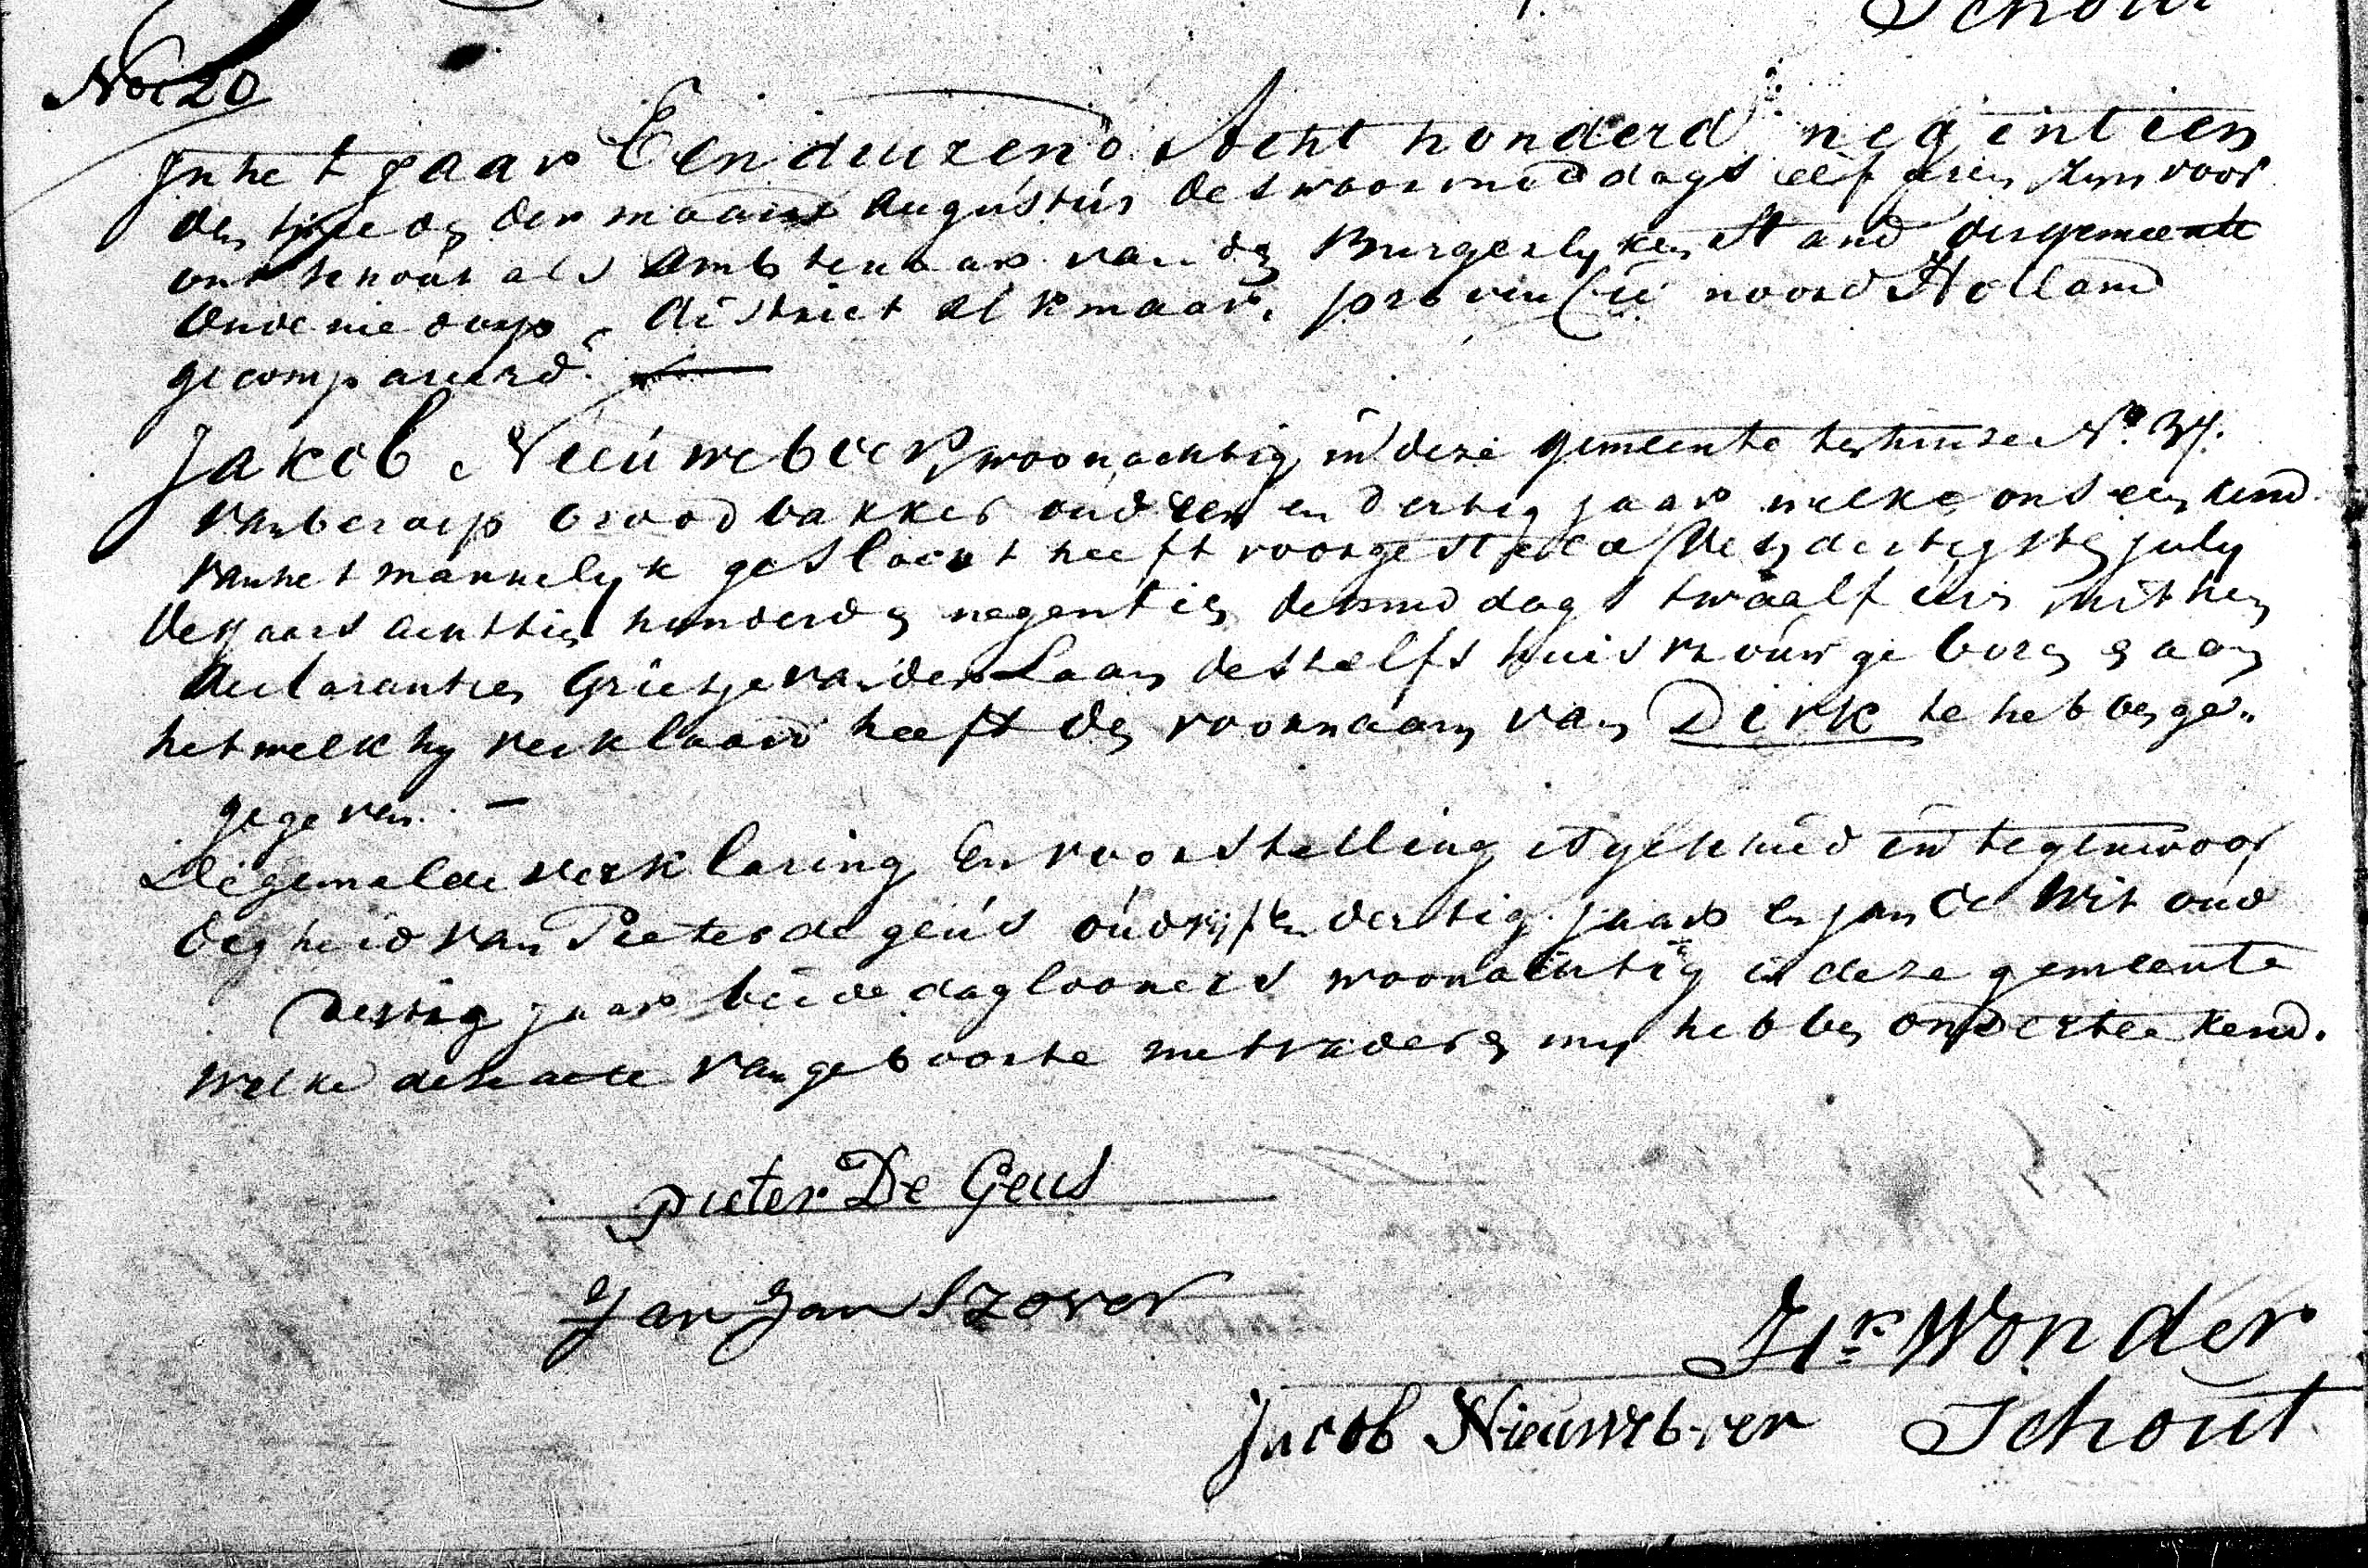 Schout
No 20
In het jaar Een duizend Acht honderd negentien
den der maand Augustus des voormiddags elf uren zyn voor
ons schout als Ambtenaar van den Burgerlyken Stand der gemeente
Oudenie dorp, district Alkmaar, provincie noord Holland
gecompareerd.
Jakob Nieuweboer, woonachtig in deze gemeente ten huize No. 34.
van beroep broodbakker oud een en dertig jaar welke ons een kind
van het mannelyk geslacht heeft voorgesteld den dertigsten july
des jaars achttien honderd en negentien des middags twaalf uur uit hem
declarant en Grietje van der Laan deszelfs huisvrouw geboren en aan
het welk hy verklaard heeft den voornaam van Dirk te hebben ge„
gegeven. —
Die gemelde verklaring en voorstelling is geschied in tegenwoor
digheid van Pieter de geus oud vyf en dertig jaar en jan de Wit oud
dertig jaar beide daglooners woonachtig in deze gemeente
welke deze acte van geboorte met vader en my hebben onderteekend.
Pieter De Geus
Jan Jan
Wonder
Jacob Nieuweboer Schout